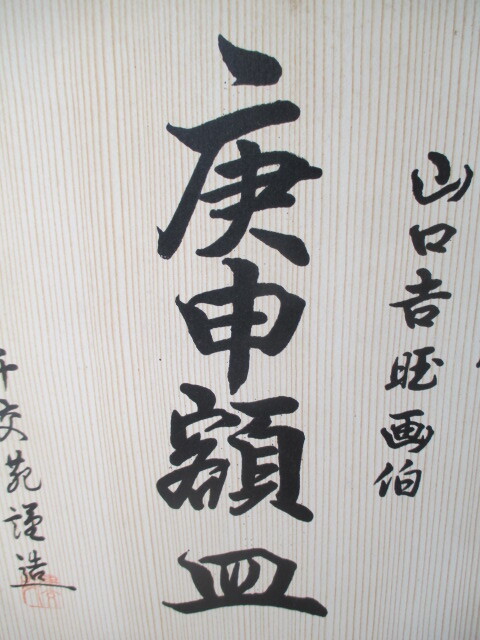 山口吉旺画伯
庚申額皿
交苑謹造